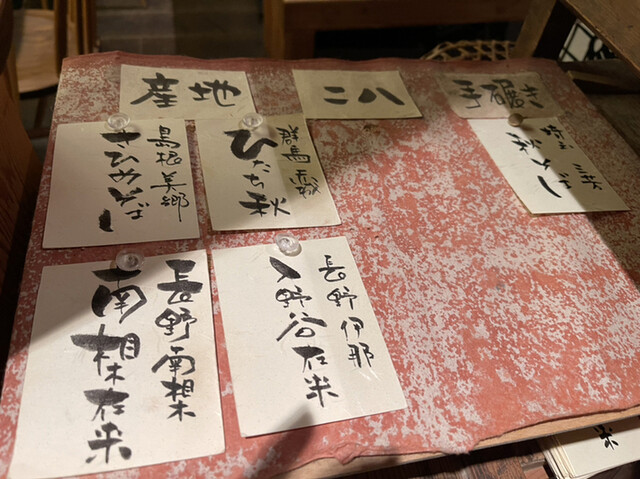 産地
二八
手碾き
島根 美郷
さひめそば
群馬 赤城
ひたち秋
埼玉 三芳
秋そば
長野南相木
南相木在来
長野 伊那
入野谷在来